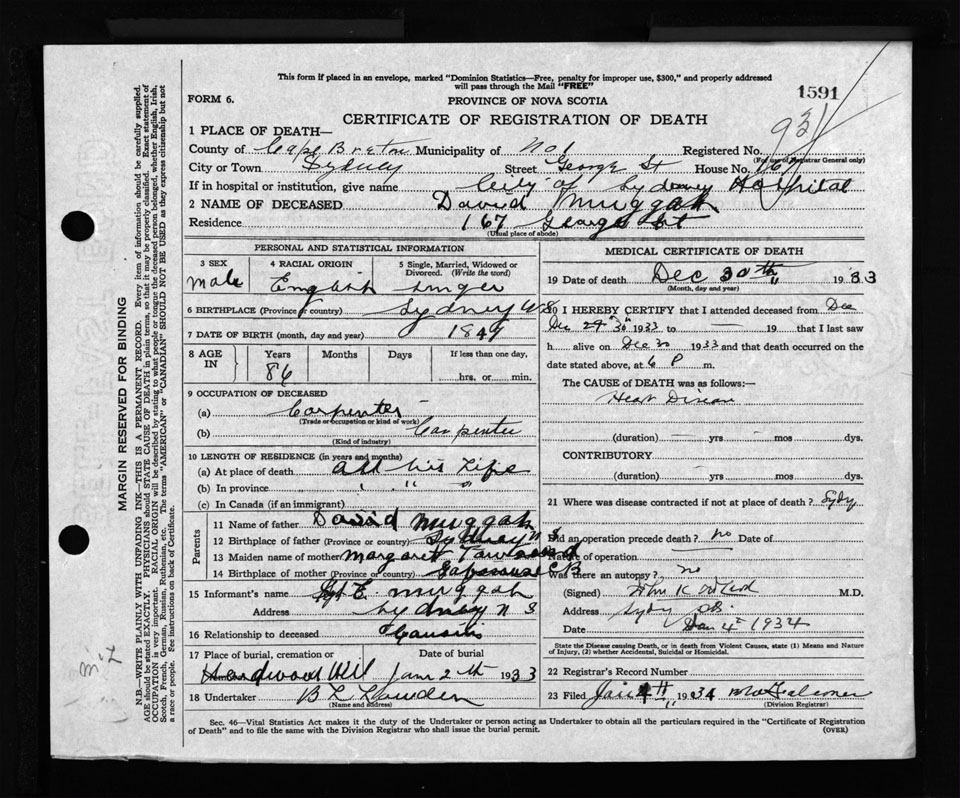 This form if placed in an envelope, marked "Dominion Statistics—Free, penalty for improper use, $300," and properly addressed
will pass through the Mail "FREE"
FORM 6.
PROVINCE OF NOVA SCOTIA
1591
CERTIFICATE OF REGISTRATION OF DEATH
931
1 PLACE OF DEATH—
County of Cape Breton Municipality of No 1 Registered No.
(For use of Registrar General only)
City or Town Sydney Street George St House No. 167
If in hospital or institution, give name City of Sydney Hospital
2 NAME OF DECEASED David Muggah
Residence 167 George St
(Usual place of abode)
PERSONAL AND STATISTICAL INFORMATION
3 SEX
4 RACIAL ORIGIN
5 Single, Married, Widowed or Divorced. (Write the word)
Male English
6 BIRTHPLACE (Province or country) Sydney
7 DATE OF BIRTH (month, day and year) 1847
8 AGE IN
Years Months Days If less than one day,
86
hrs. or min.
9 OCCUPATION OF DECEASED
(a) Carpenter
(Trade or occupation or kind of work)
(b) Carpenter
(Kind of industry)
10 LENGTH OF RESIDENCE (in years and months)
(a) At place of death All his Life
(b) In province " " "
(c) In Canada (if an immigrant)
Parents
11 Name of father David Muggah
12 Birthplace of father (Province or country) Sydney N S
13 Maiden name of mother Margaret
14 Birthplace of mother (Province or country) C B
15 Informant's name Sgt E. Muggah
Address Sydney N S
16 Relationship to deceased
17 Place of burial, cremation or Date of burial
Hardwood Hill Jan 2th 1933
18 Undertaker
(Name and address)
MEDICAL CERTIFICATE OF DEATH
19 Date of death Dec 30th 1933
(Month, day and year)
20 I HEREBY CERTIFY that I attended deceased from Dec
Dec 29 30 1933 to — 19 that I last saw
h alive on Dec 30 1933 and that death occurred on the
date stated above, at 6 P m.
The CAUSE of DEATH was as follows:—
Heart Disease
(duration) — yrs — mos dys.
CONTRIBUTORY
(duration) — yrs — mos dys.
21 Where was disease contracted if not at place of death? Sydy
Did an operation precede death? no Date of
Nature of operation
Was there an autopsy? no
(Signed) M.D.
Address Sydy CB.
Date Jan 4th 1934
State the Disease causing Death, or in death from Violent Causes, state (1) Means and Nature of Injury, (2) whether Accidental, Suicidal or Homicidal.
22 Registrar's Record Number
23 Filed Jan 4th 1934
(Division Registrar)
Sec. 46—Vital Statistics Act makes it the duty of the Undertaker or person acting as Undertaker to obtain all the particulars required in the "Certificate of Registration
of Death" and to file the same with the Division Registrar who shall issue the burial permit.
(OVER)
MARGIN RESERVED FOR BINDING
N.B.—WRITE PLAINLY WITH UNFADING INK—THIS IS A PERMANENT RECORD. Every item of information should be carefully supplied.
AGE should be stated EXACTLY. PHYSICIANS should STATE CAUSE OF DEATH in plain terms, so that it may be properly classified. Exact statement of
OCCUPATION is very important. RACIAL ORIGIN will be described by stating to what people or tongue the deceased person belonged, whether English, Irish,
Scotch, French, German, Russian, Ruthenian, etc. The terms "AMERICAN" or "CANADIAN" SHOULD NOT BE USED as they express citizenship but not
a race or people. See instructions on back of Certificate.